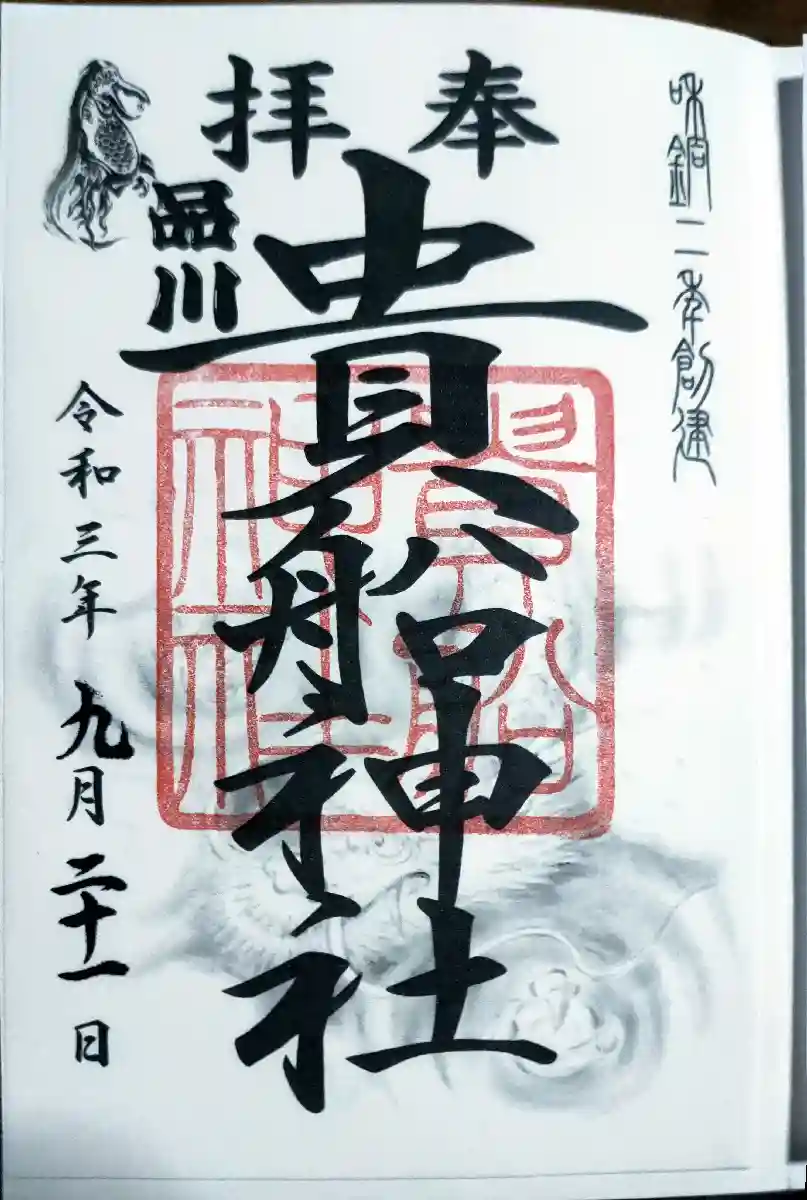 和銅二年創建
奉拝
貴船神社
品川
令和三年九月二十一日
貴船
神社